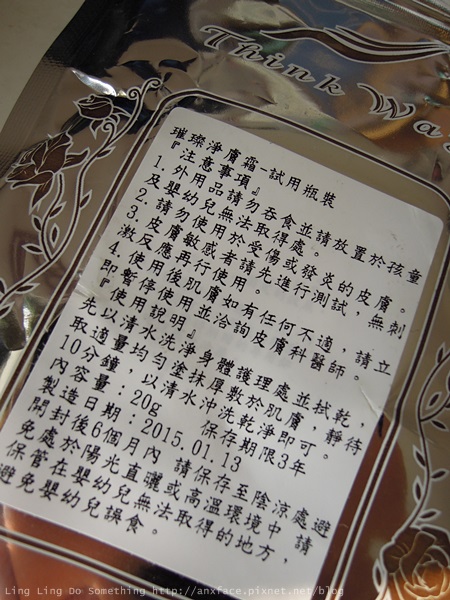 Think Wa
璀璨淨膚霜-試用瓶裝
『注意事項』
1. 外用品請勿吞食並請放置於孩童
及嬰幼兒無法取得處。
2. 請勿使用於受傷或發炎的皮膚。
3. 皮膚敏感者請先進行測試，無刺
激反應再行使用。
4. 使用後肌膚如有任何不適，請立
即暫停使用並洽詢皮膚科醫師。
『使用說明』
先以清水洗淨身體護理處並拭乾，
取適量均勻塗抹厚敷於肌膚，靜待
10分鐘，以清水沖洗乾淨即可。
內容量：20g 保存期限3年
製造日期：2015.01.13
開封後6個月內 請保存至陰涼處避
免處於陽光直曬或高溫環境中 請
保管在嬰幼兒無法取得的地方，
避免嬰幼兒誤食。
Ling Ling Do Something http://anxface.pixnet.net/blog